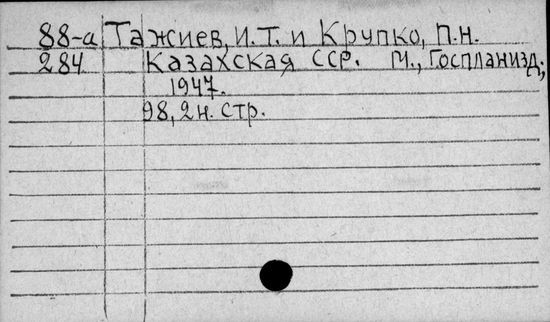 88-а Тажиев, И.Т. и Крупко, П.Н.
284 Казахская ССР. М., Госпланизд.,
1947.
98, 2 н. стр.